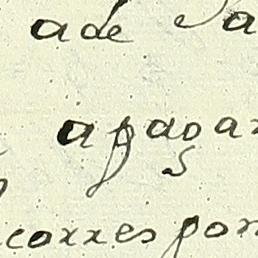 ade Sa
apagar
correspon